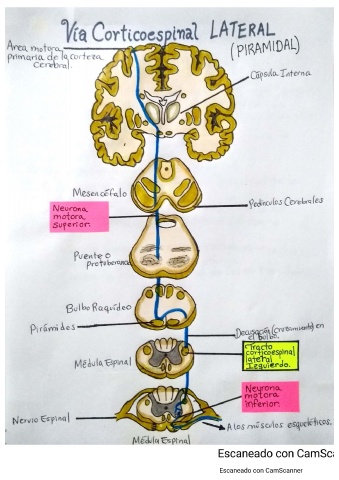 Vía Corticoespinal LATERAL
(PIRAMIDAL)
Area motora
primaria de la corteza
cerebral.
Cápsula Interna
Mesencéfalo
Pedúnculos Cerebrales
Neurona
motora
superior.
Puente o
protuberancia
Bulbo Raquídeo
Pirámides
Decusación (cruzamiento) en
el bulbo.
Tracto
corticoespinal
lateral
Izquierdo.
Médula Espinal
Neurona
motora
inferior.
Nervio Espinal
A los músculos esqueléticos.
Médula Espinal
Escaneado con CamSca
Escaneado con CamScanner